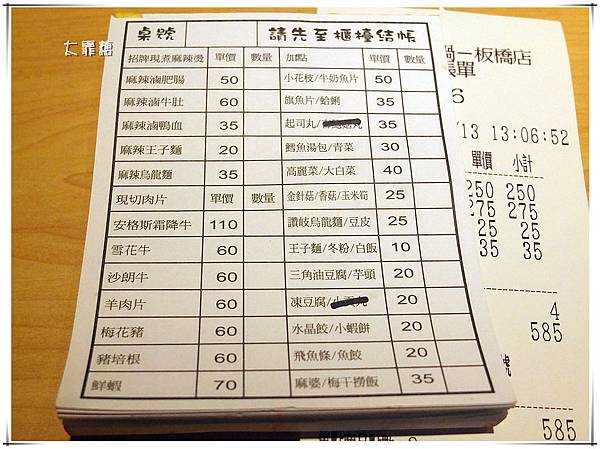 太霏糖
桌號 請先至櫃檯結帳
招牌現煮麻辣燙 單價 數量 加點 單價 數量
麻辣滷肥腸 50 小花枝/牛奶魚片 50
麻辣滷牛肚 60 旗魚片/蛤蜊 35
麻辣滷鴨血 35 起司丸/ 35
麻辣王子麵 20 鱈魚湯包/青菜 30
麻辣烏龍麵 35 高麗菜/大白菜 40
現切肉片 單價 數量 金針菇/香菇/玉米筍 25
安格斯霜降牛 110 讚岐烏龍麵/豆皮 25
雪花牛 60 王子麵/冬粉/白飯 10
沙朗牛 60 三角油豆腐/芋頭 20
羊肉片 60 凍豆腐/ 20
梅花豬 60 水晶餃/小蝦餅 20
豬培根 60 飛魚條/魚餃 20
鮮蝦 70 麻婆/梅干撈飯 35
鍋－板橋店
帳單
6
/13 13:06:52
單價 小計
250 250
275 275
25 25
35 35
4
585
號
585